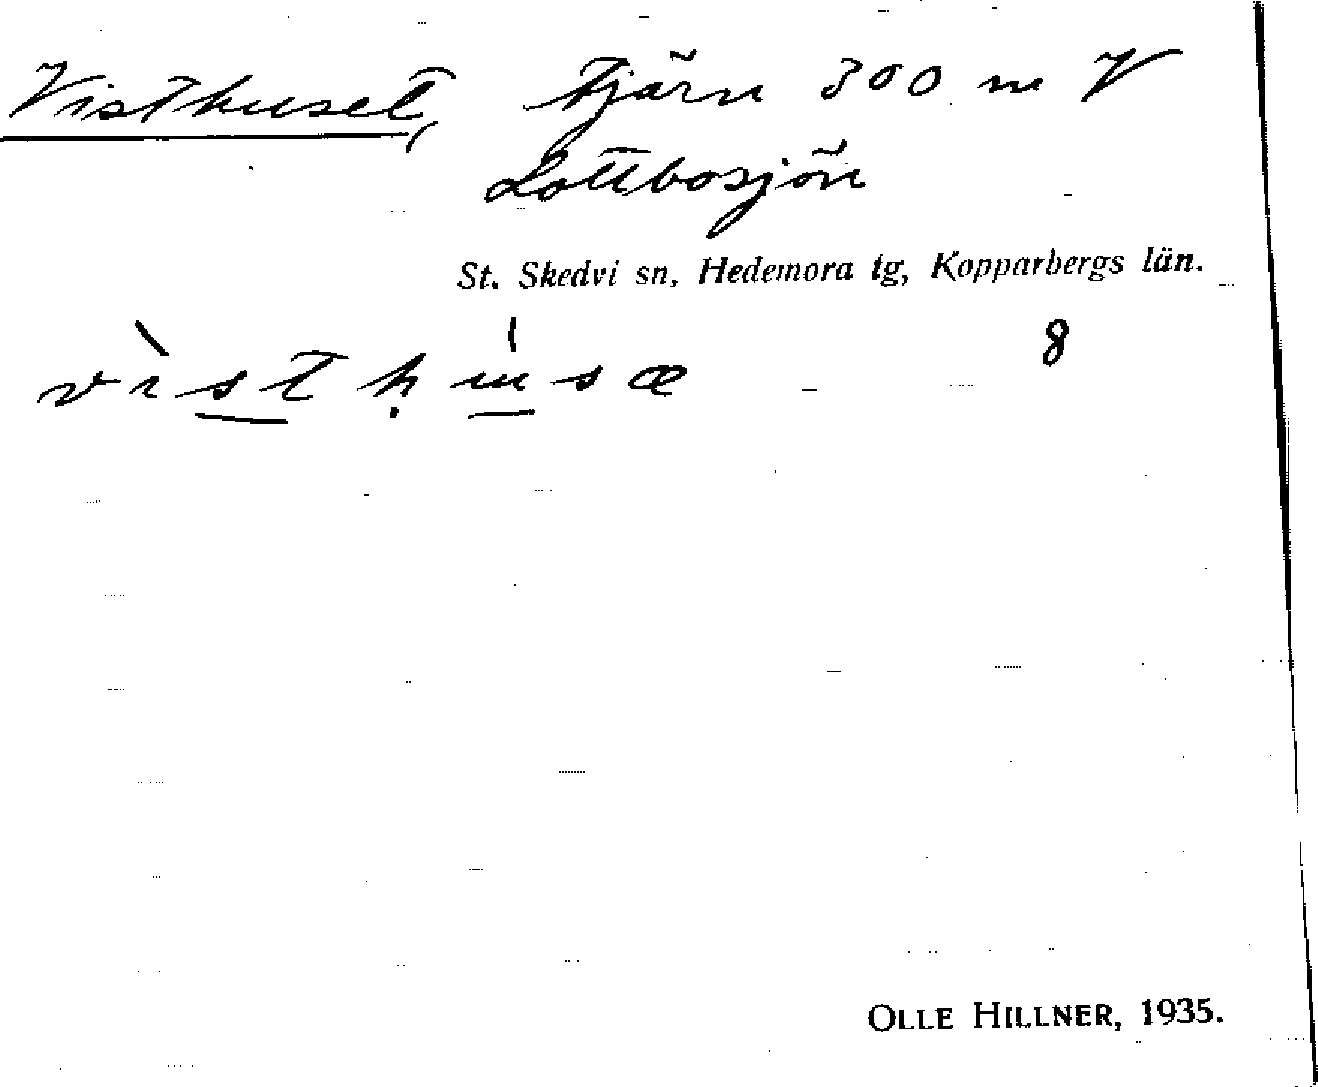 Visthuset, tjärn 300 m V
Lottbosjön
St. Skedvi sn, Hedemora tg, Kopparbergs län.
vìstḥúsæ 8
OLLE HILLNER, 1935.